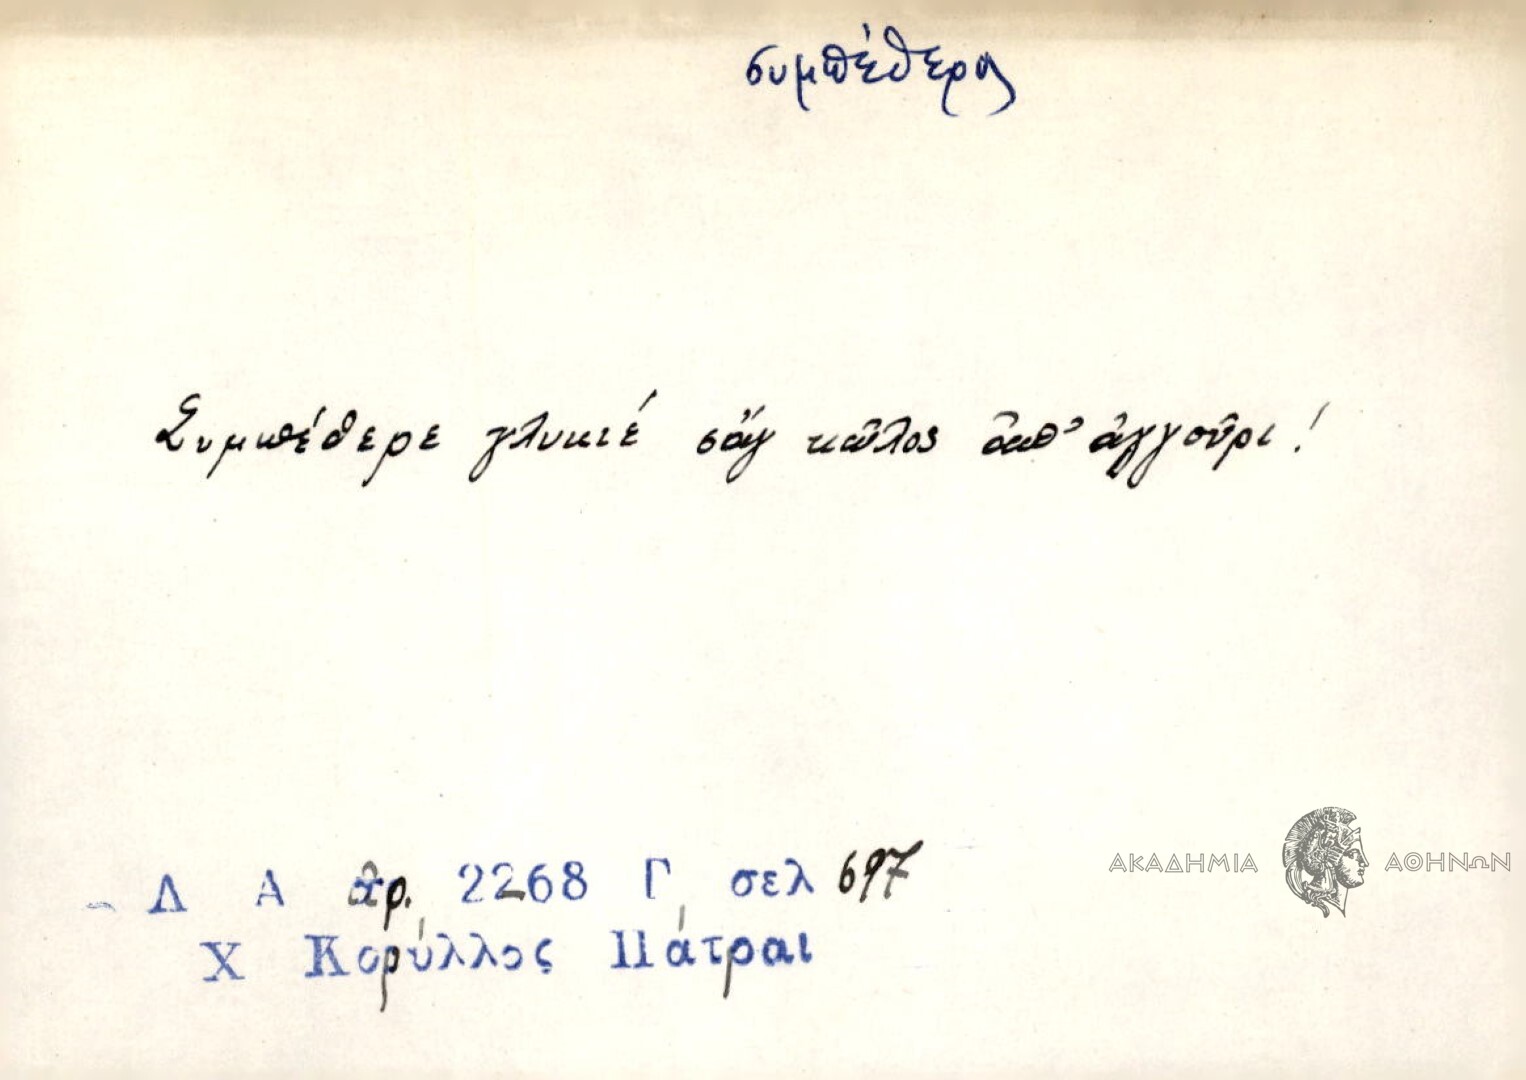 συμπέθερος
Συμπέθερε γλυκιέ σὰν κῶλος ἀπ' ἀγγοῦρι!
Λ Α ἀρ. 2268 Γ, σελ 697
Χ Κορύλλος Πάτραι
ΑΚΑΔΗΜΙΑ ΑΘΗΝΩΝ